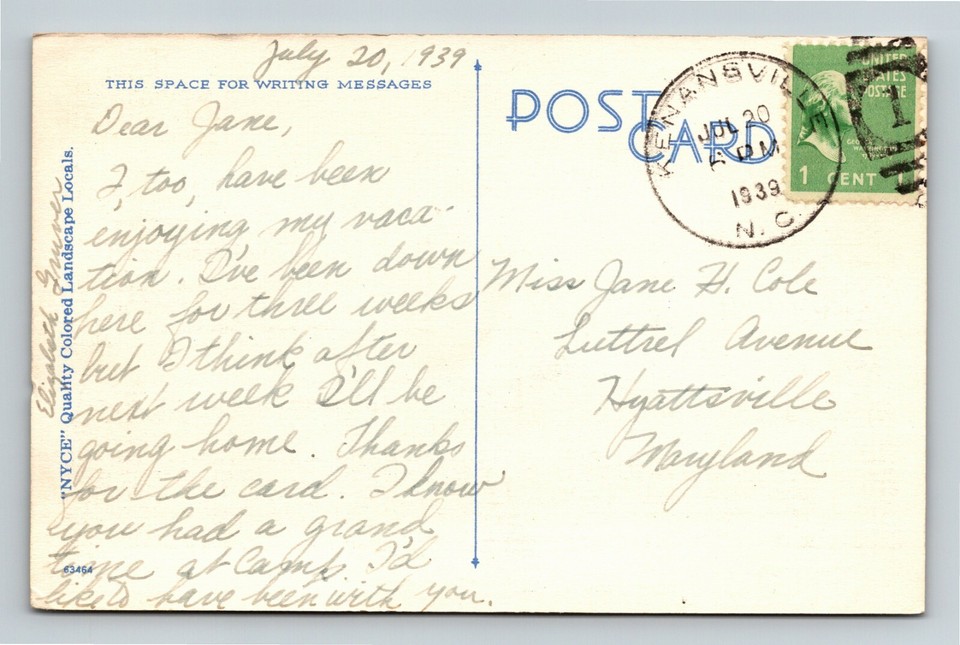 July 20, 1939
THIS SPACE FOR WRITING MESSAGES
Dear Jane,
I, too, have been
enjoying my vaca-
tion. I've been down
here for three weeks
but I think after
next week I'll be
going home. Thanks
for the card. I know
you had a grand
time at Camp. I'd
like to have been with you.
Elizabeth
"NYCE" Quality Colored Landscape Locals.
63464
POST CARD
KENANSVILLE
JUL 20
PM
1939
N. C.
UNITED
STATES
POSTAGE
1 CENT 1
Miss Jane H. Cole
Luttrel Avenue
Hyattsville
Maryland